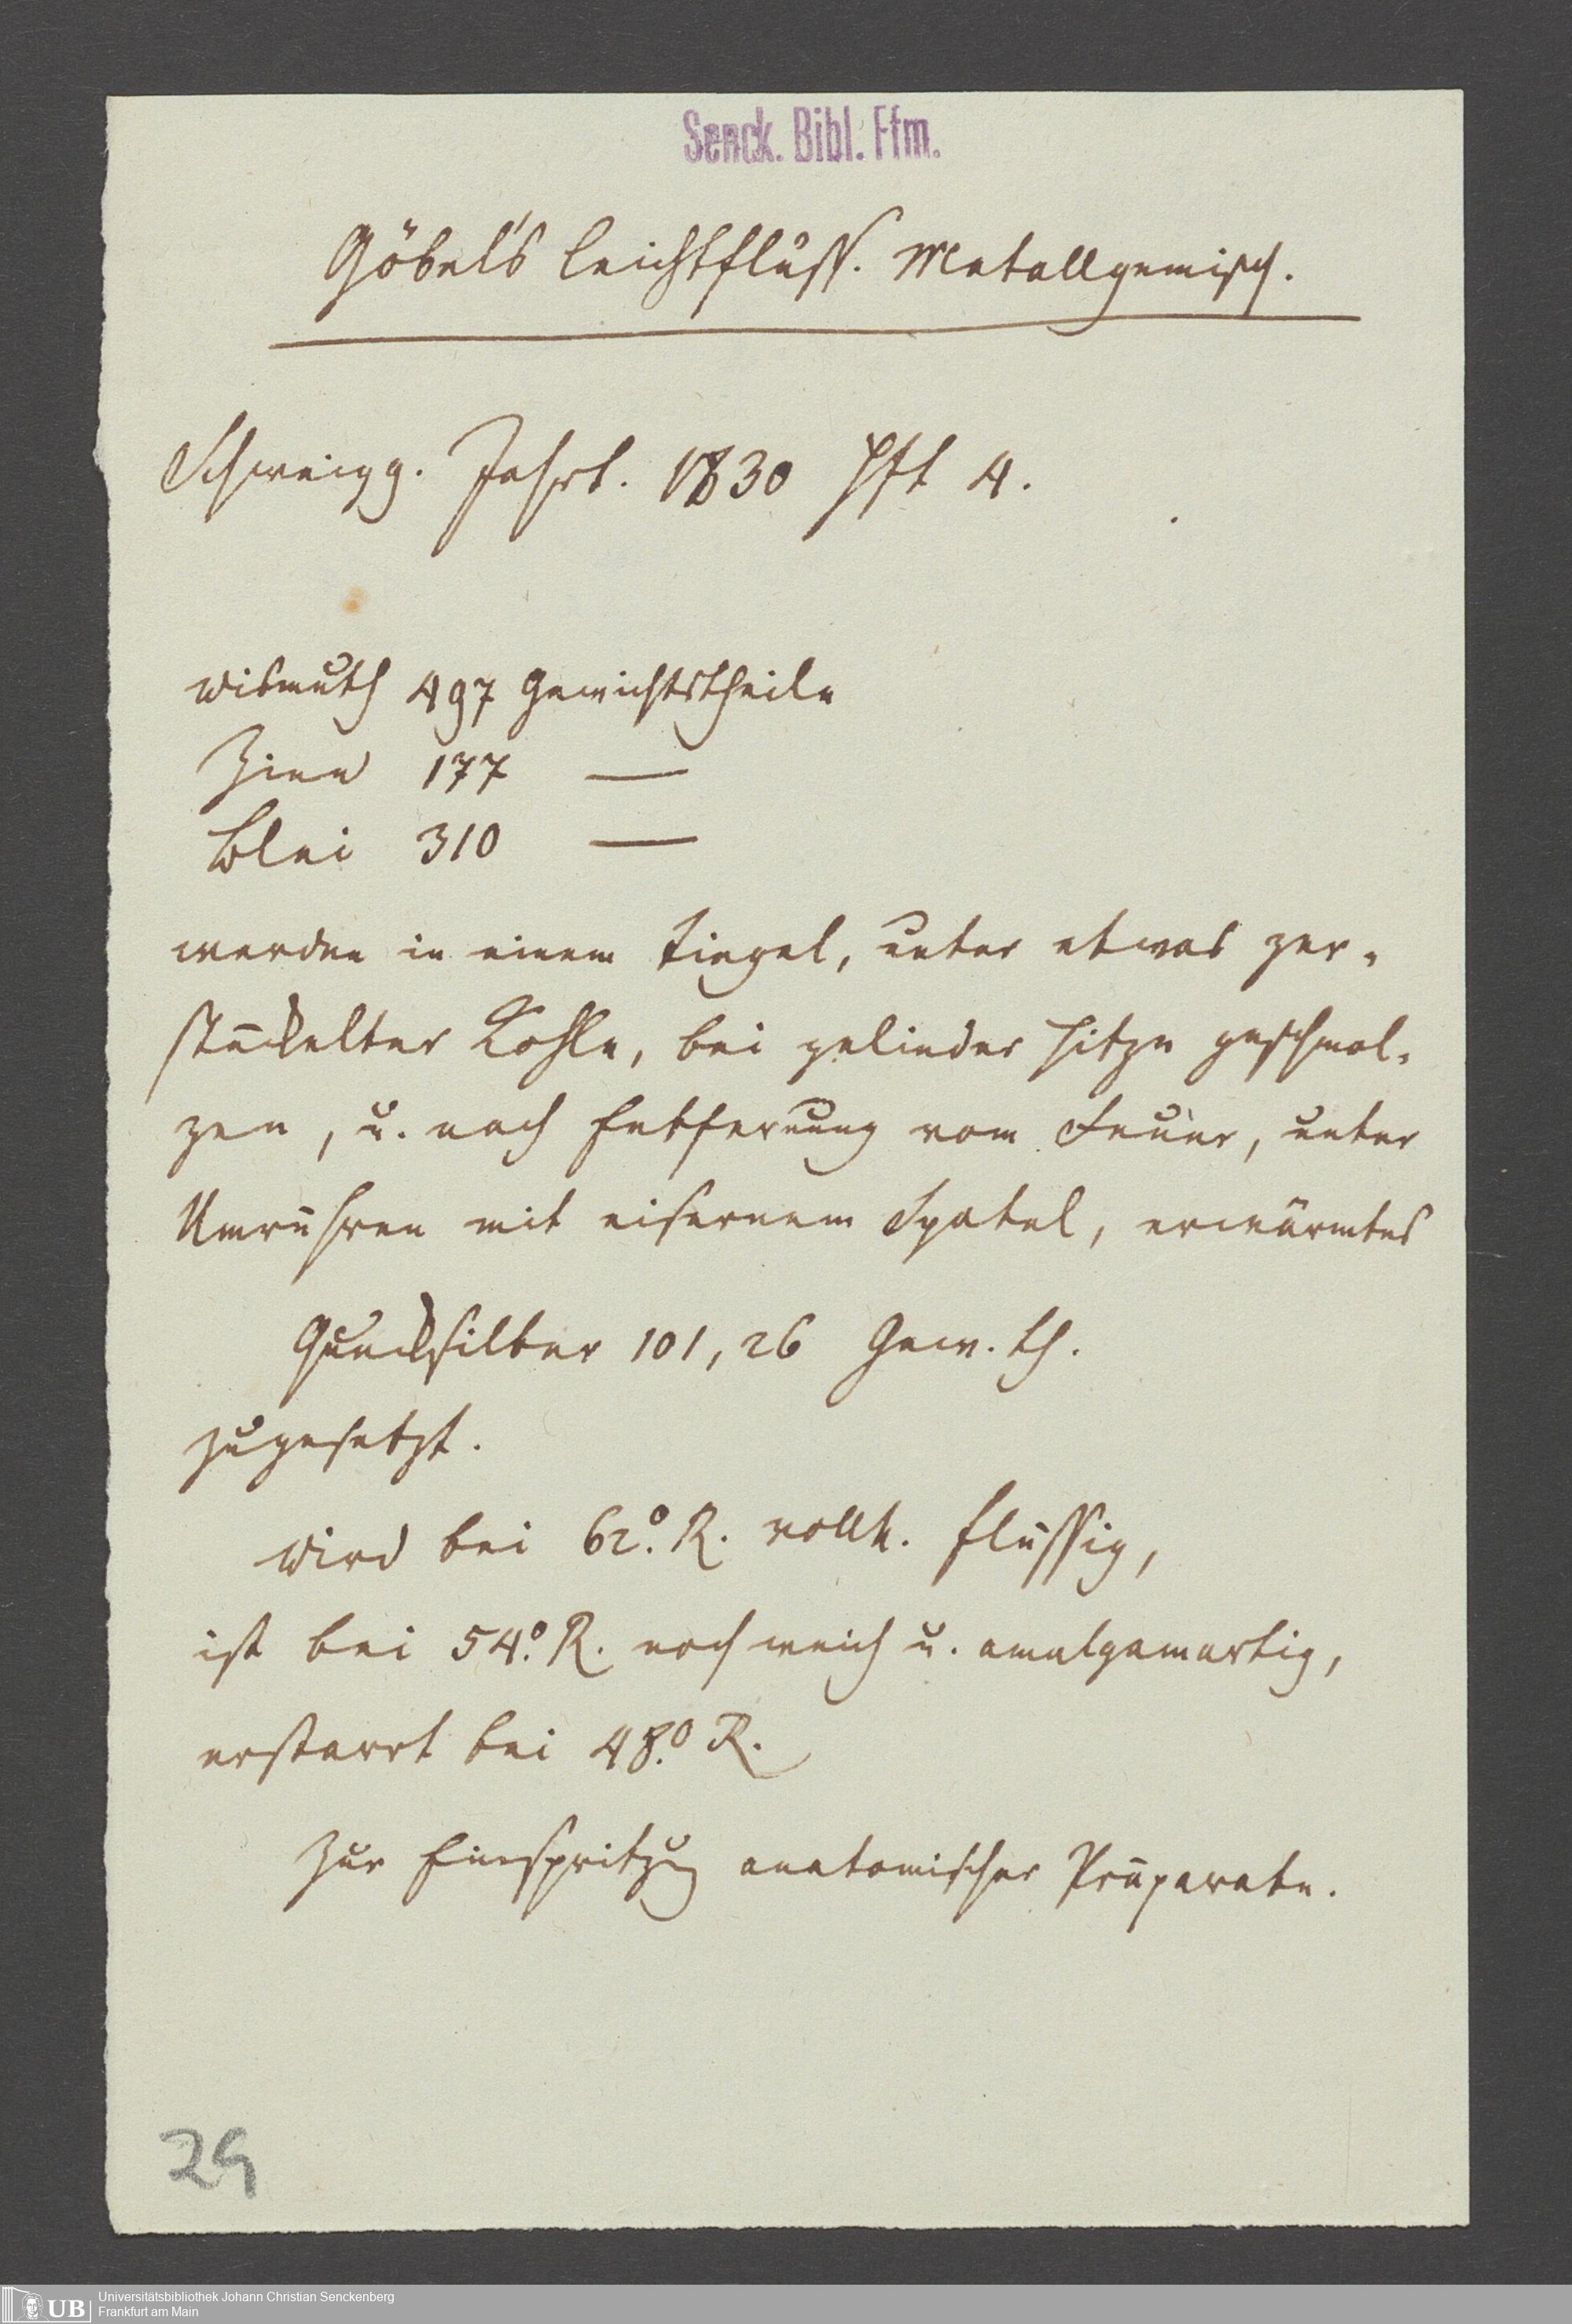 Senck. Bibl. Ffm.
Göbel's leichtflüss. Metallgemisch.
Schweigg. Jahrb. 1830 Hft 4.
Wismuth 497 Gewichtstheile
Zinn 177 —
Blei 310 —
werden in einem Tiegel, unter etwas zer-
stückelter Kohle, bei gelinder Hitze geschmol-
zen, u. nach Entfernung vom Feuer, unter
Umrühren mit eisernem Spatel, erwärmtes
Quecksilber 101,26 Gew. th.
zugesetzt.
Wird bei 62.° R. vollk. flüssig,
ist bei 54.° R. noch weich u. amalgamartig,
erstarrt bei 48.° R.
Zur Einspritzung anatomischer Präparate.
29
UB Universitätsbibliothek Johann Christian Senckenberg
Frankfurt am Main